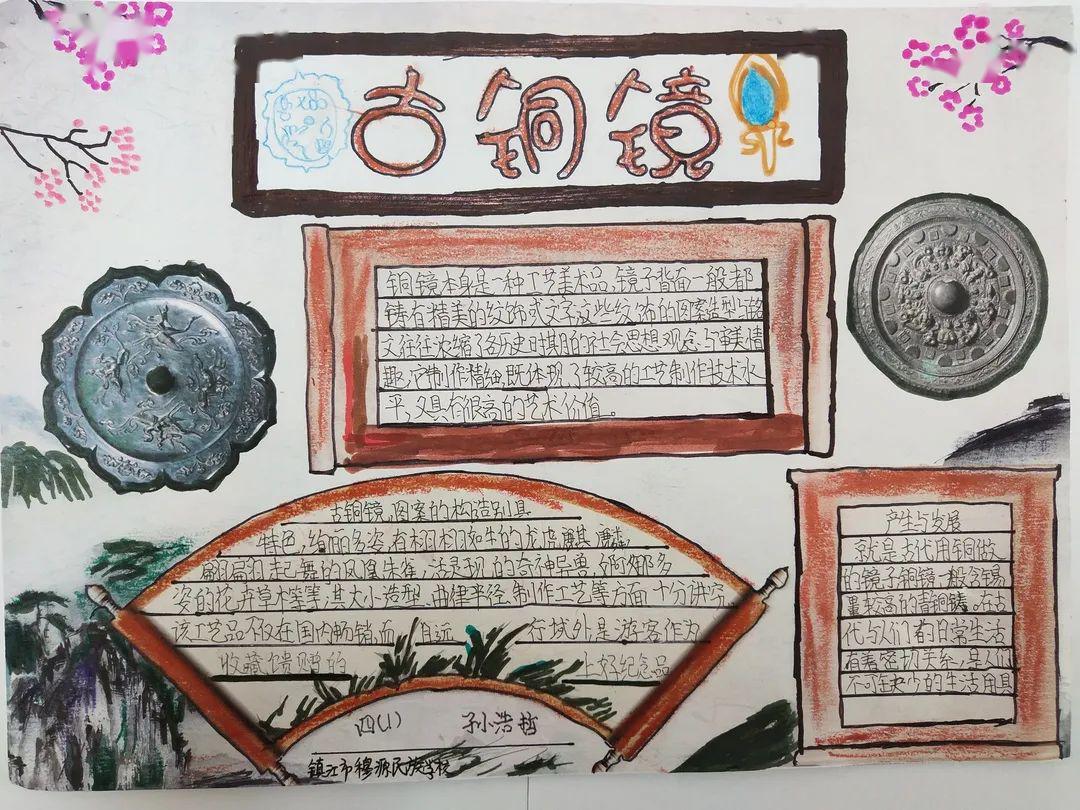 古铜镜
铜镜本身是一种工艺美术品,镜子背面一般都
铸有精美的纹饰或文字,这些纹饰的图案造型与铭
文往往浓缩了各历史时期的社会思想观念与审美情
趣,它制作精细,既体现了较高的工艺制作技术水
平,又具有很高的艺术价值。
古铜镜图案的构造别具
特色,绚丽多姿,有栩栩如生的龙虎麒麟,
翩翩起舞的凤凰朱雀,活灵活现的奇神异兽,婀娜多
姿的花卉草木等等,其大小造型、曲律半径、制作工艺等方面十分讲究
该工艺品不仅在国内畅销,而且远行域外是游客作为
收藏馈赠的上好纪念品
产生与发展
就是古代用铜做
的镜子铜镜一般含锡
量较高的青铜铸。在古
代与人们着的日常生活
有着密切关系,是人们
不可缺少的生活用具
四(1) 孙小浩哲
镇江市穆源民族学校